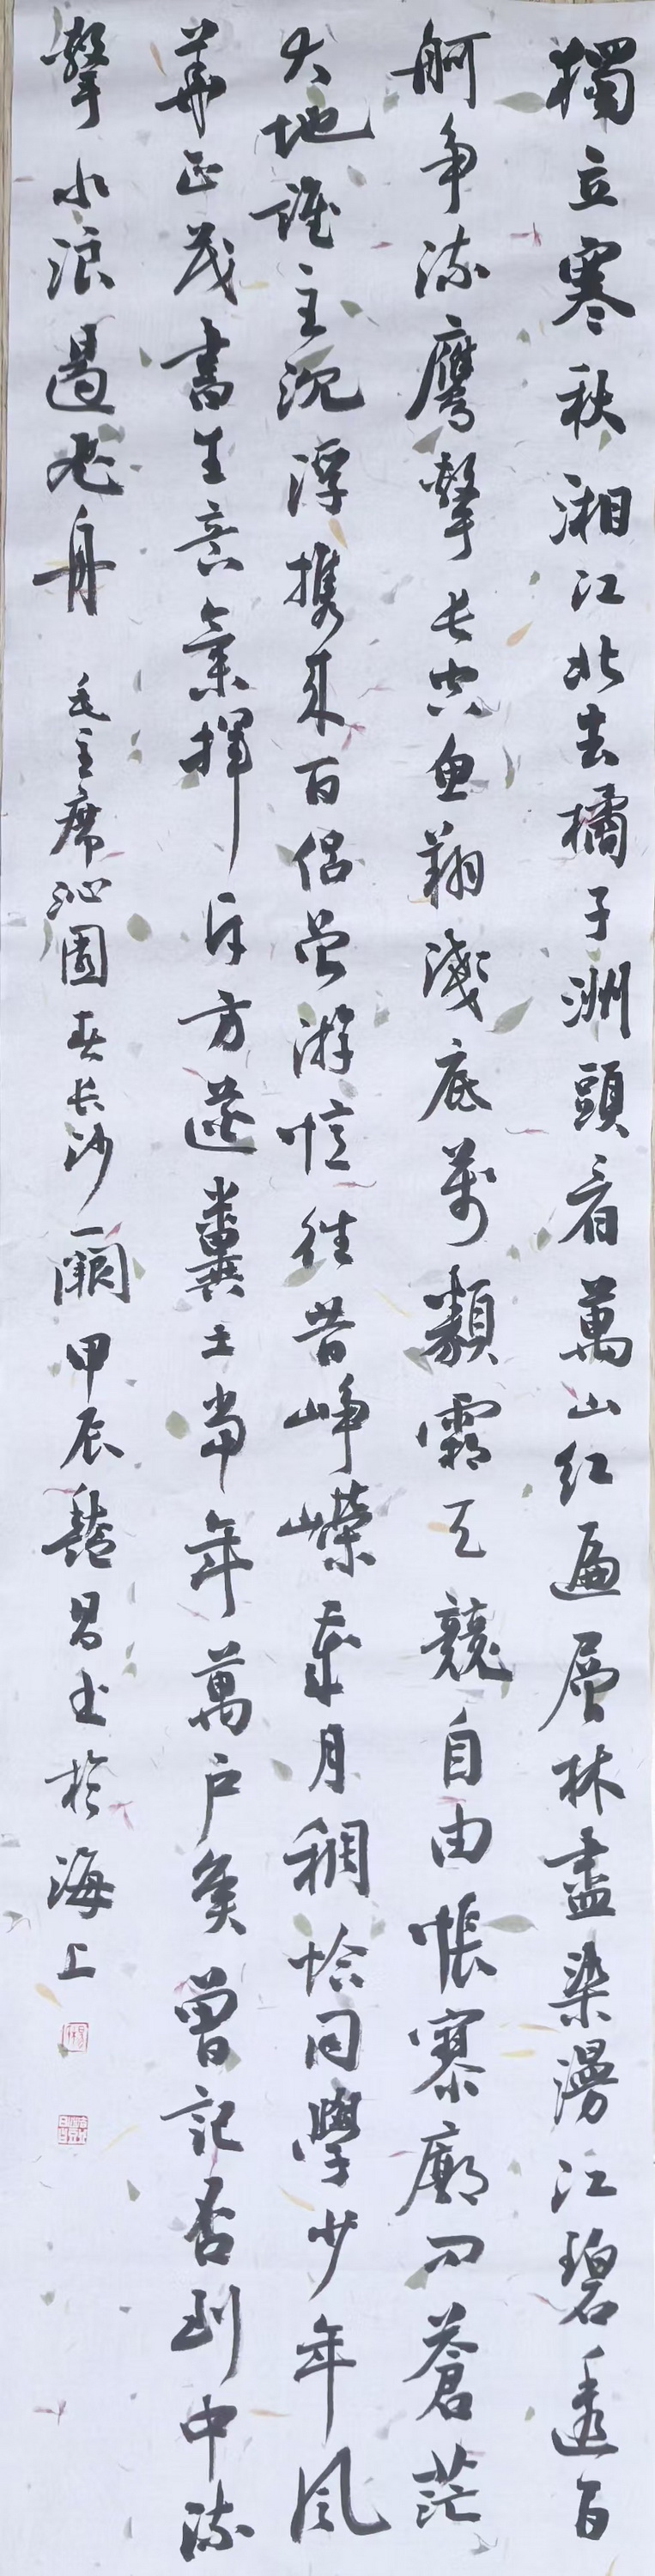 獨立寒秋湘江北去橘子洲頭看萬山紅遍層林盡染漫江碧透百
舸争流鷹擊長空魚翔淺底萬類霜天競自由悵寥廓問蒼茫
大地誰主沉浮携來百侣曾游憶往昔崢嶸歲月稠恰同學少年風
華正茂書生意氣揮斥方遒糞土當年萬户侯曾記否到中流
擊水浪遏飛舟 毛主席沁園春長沙一闋甲辰昌书於海上